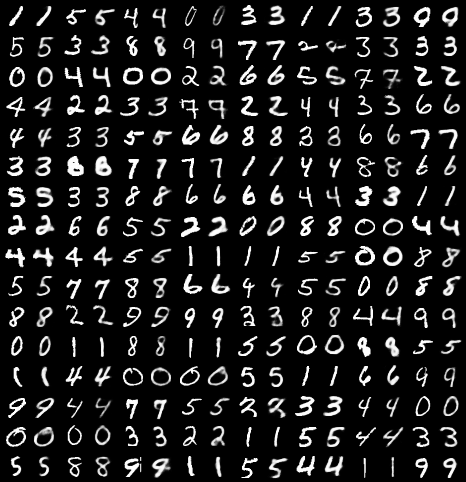 1 1 5 5 4 4 0 0 3 3 1 1 3 3 9 9
5 5 3 3 8 8 9 9 7 7 2 2 3 3 3 3
0 0 4 4 0 0 2 2 6 6 5 5 7 7 2 2
4 4 2 2 3 3 7 7 2 2 4 4 3 3 6 6
4 4 3 3 5 5 6 6 8 8 3 3 6 6 7 7
3 3 8 8 7 7 7 7 1 1 4 4 8 8 6 6
5 5 3 3 8 8 6 6 6 6 4 4 3 3 1 1
2 2 6 6 5 5 2 2 0 0 8 8 0 0 4 4
4 4 4 4 5 5 1 1 1 1 5 5 0 0 8 8
5 5 7 7 8 8 6 6 4 4 5 5 0 0 8 8
8 8 2 2 9 9 9 9 3 3 8 8 4 4 9 9
0 0 1 1 8 8 1 1 5 5 0 0 8 8 5 5
1 1 4 4 0 0 0 0 5 5 1 1 6 6 9 9
9 9 4 4 7 7 5 5 2 2 3 3 4 4 0 0
0 0 0 0 3 3 2 2 1 1 5 5 4 4 3 3
5 5 8 8 9 9 1 1 5 5 4 4 1 1 9 9